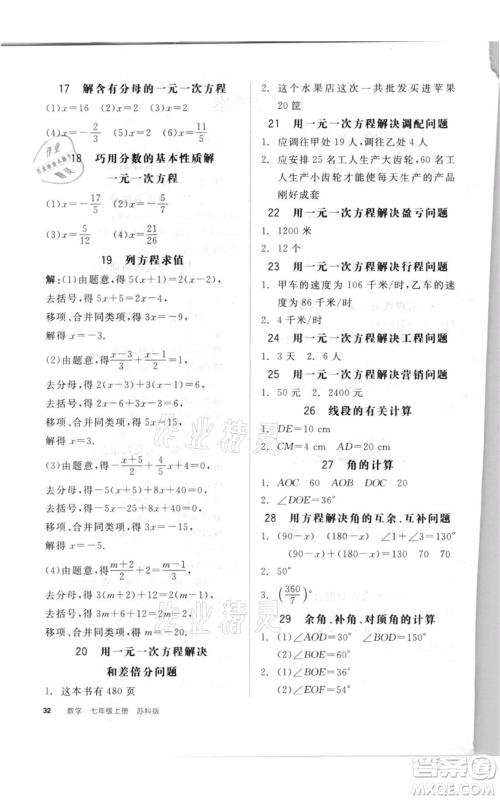 17 解含有分母的一元一次方程
(1)x=16 (2)x=2
(3)x=-2/3 (4)x=11/5
18 巧用分数的基本性质解
一元一次方程
(1)x=-17/5 (2)x=-15/4
(3)x=5/12 (4)x=21/26
19 列方程求值
解:(1)由题意,得5(x+1)=2(x-1),
去括号,得5x+5=2x-2,
移项、合并同类项,得3x=-7,
解得x=-7/3.
(2)由题意,得(x-3)/3+(x-1)/5=4,
去分母,得5(x-3)+3(x-1)=60,
去括号,得5x-15+3x-3=60,
移项、合并同类项,得8x=78,
解得x=39/4.
(3)由题意,得-(x+5)/5+x/2+4=0,
去分母,得-2(x+5)+5x+40=0,
去括号,得-2x-10+5x+40=0,
移项、合并同类项,得3x=-30,
解得x=-10.
(4)由题意,得(m+2)/2+(m-1)/3=-2,
去分母,得3(m+2)+2(m-1)=-12,
去括号,得3m+6+2m-2=-12,
移项、合并同类项,得5m=-16,
解得m=-16/5.
20 用一元一次方程解决
和差倍分问题
1. 这本书有480页
2. 这个水果店这一次共批发买进苹果
20筐
21 用一元一次方程解决调配问题
1. 应调往甲处19人,调往乙处1人
2. 应安排25名工人生产大齿轮,60名工
人生产小齿轮才能使每天生产的产品
刚好成套
22 用一元一次方程解决盈亏问题
1. 1200米
2. 12个
23 用一元一次方程解决行程问题
1. 甲车的速度为106千米/时,乙车的速
度为86千米/时
2. 4千米/时
24 用一元一次方程解决工程问题
1. 3天 2. 2天
25 用一元一次方程解决营销问题
1. 50元 2. 2400元
26 线段的有关计算
1. DE=10 cm
2. CM=4 cm AD=20 cm
27 角的计算
1. AOC 60 AOB DOC 20
2. ∠DOE=36°
28 用方程解决角的互余、互补问题
1. (90-x) (180-x) ∠1+∠3=130°
(90-x)+(180-x)=130 70°
2. 50°
3. (360/7)°
29 余角、补角、对顶角的计算
1. (1)∠AOD=30° (2)∠BOD=60°
2. (1)∠BOE=35° (2)∠AOF=60°
3. (1)∠BOE=36° (2)∠AOE=30°
32 数学 七年级上册 苏科版
作业精灵